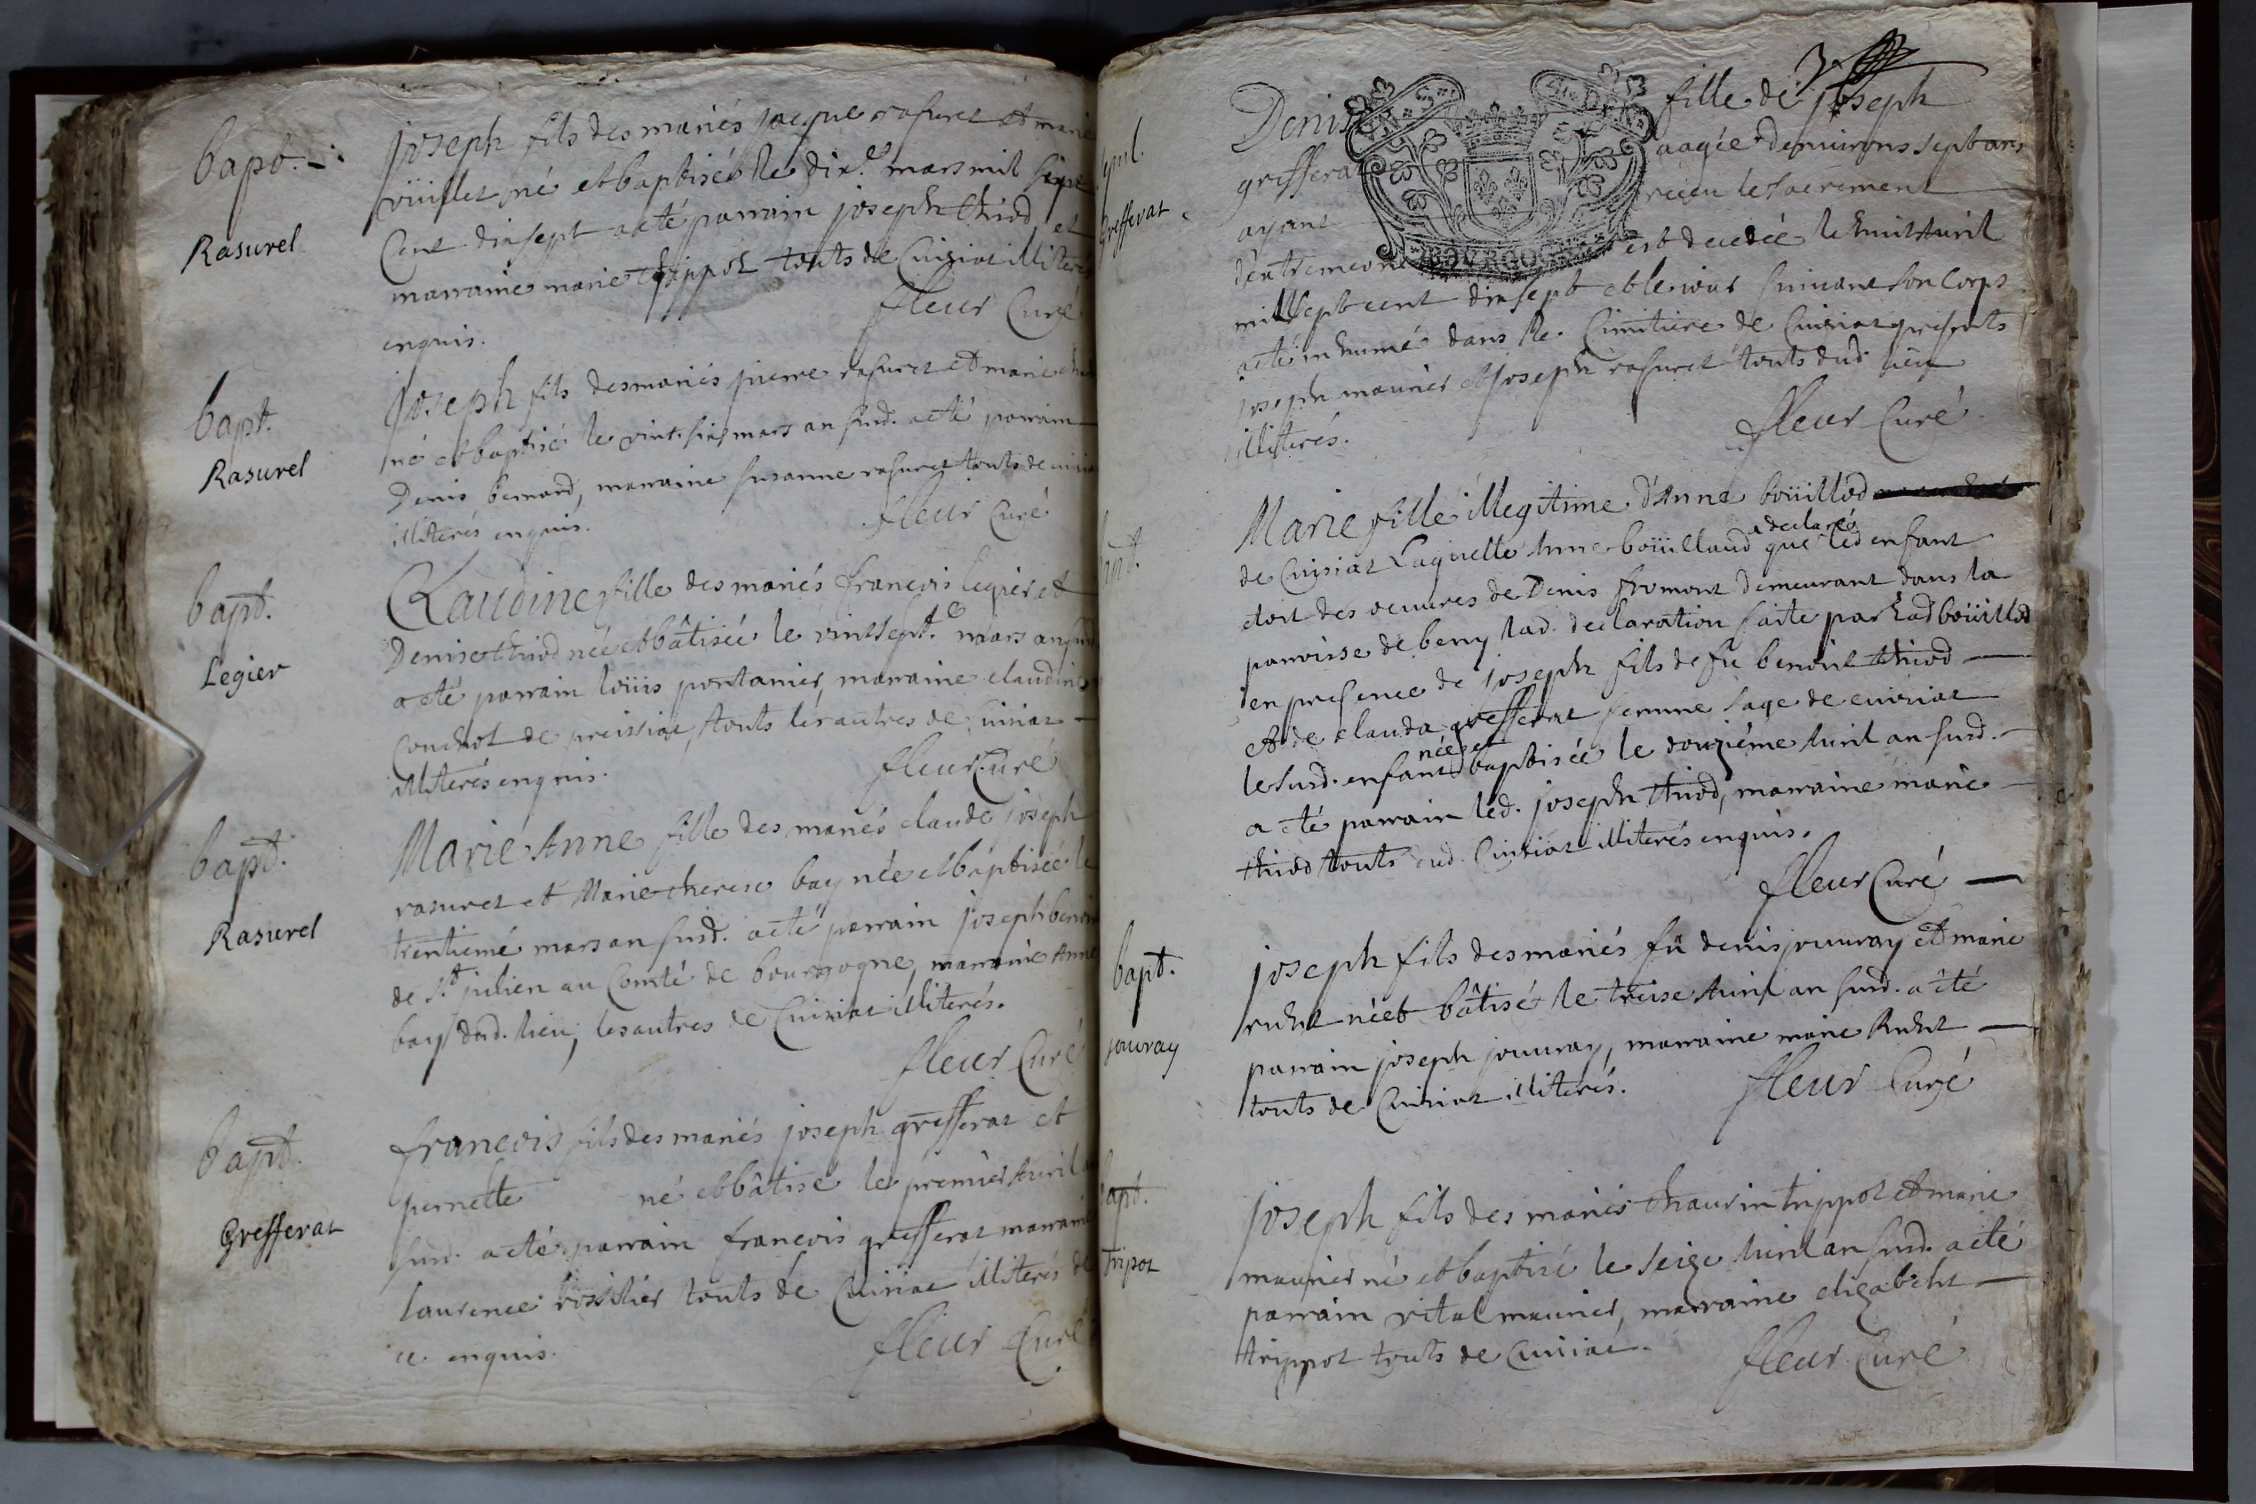 bapt.
Rasurel
joseph fils des mariés jacque rasurel et marie
vüillet né et baptisé le dix.e mars mil sept
Cent dix sept a eté parrain joseph thiod et
marraine marie trippot touts de Cuisiat illiterés
enquis.
fleur Curé
bapt.
Rasurel
Joseph fils des mariés pierre rasurel et marie
né et baptisé le vint. six mars an susd. a eté parrain
Denis bernard, marraine susanne rasurel touts de cuisiat
illiterés enquis.
fleur Curé
bapt.
Legier
Claudine fille des mariés francois legier et
Denise thiod née et bâtisée le vintsept.e mars an susd
a eté parrain loüis pontanier, marraine claudine
Couchot de preissiat, touts les autres de Cuisiat
illiterés enquis.
fleur Curé
bapt.
Rasurel
Marie Anne fille des mariés claude joseph
rasurel et Marie therese bay née et baptisée le
trentiemé mars an susd. a eté parrain joseph benoit
de St julien au Comté de bourgogne, marraine Anne
bay dud. lieu, les autres de Cuisiat illiterés.
fleur Curé
bapt.
Grefferat
francois fils des mariés joseph grefferat et
pernette né et bâtisé le premier Avril
susd. a eté parrain francois grefferat marraine
laurence touts de Cuisiat illiterés de
ce enquis.
fleur Curé
Grefferat
Denise fille de joseph
grefferat aagée d'enuirons sept ans
ayant receu le sacrement
d'extremeonction est decedée le huit Auril
mil sept cent dix sept et le iour suiuant son Corps
a eté inhumé dans le Cimitiere de Cuisiat presents
joseph maurier et joseph rasurel touts dud. lieu
illiterés.
fleur Curé
bapt.
Marie fille illegitime d'Anne boüillod
de Cuisiat Laquelle Anne boüillaud a declaré que led enfant
etoit des oeuures de Denis fromont demeurant dans la
parroisse de beny lad. declaration faite par Lad boüillod
en presence de joseph fils de fû benoit thiod
et de clauda grefferat femme sage de cuisiat
le susd. enfant née et baptisée le douziéme Auril an susd.
a eté parrain led. joseph thiod, marraine marie
thiod touts dud. Cuisiat illiterés enquis.
fleur Curé
bapt.
jouuray
joseph fils des mariés fû denis jouuray et marie
né et bâtisé le treise Auril an susd. a eté
parrain joseph jouuray, marraine marie
touts de Cuisiat illiterés.
fleur Curé
bapt.
Tripot
joseph fils des mariés thaurin trippot et marie
maurier né et baptisé le seize Auril an susd. a eté
parrain vital maurier, marraine elizabeht
trippot touts de Cuisiat.
fleur Curé